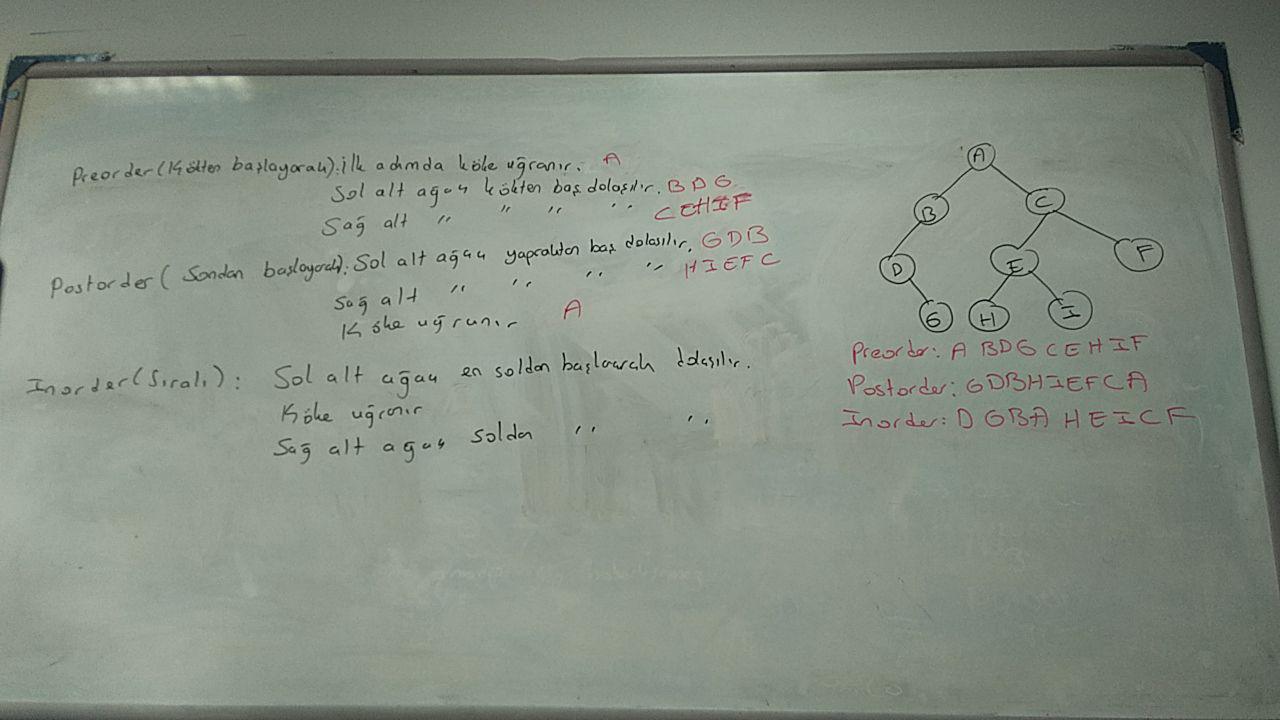 Preorder (Kökten başlayarak): İlk adımda köke uğranır. A
Sol alt ağaç kökten baş dolaşılır. BDG
Sağ alt " " " " CEHIF
Postorder (Sondan başlayarak): Sol alt ağaç yapraktan baş dolaşılır. GDB
Sağ alt " " " " HIEFC
Köke uğranır A
Inorder (Sıralı): Sol alt ağaç en soldan başlayarak dolaşılır.
Köke uğranır
Sağ alt ağaç soldan " "
A
B C
D E F
G H I
Preorder: A BDG CEHIF
Postorder: GDBHIEFCA
Inorder: DGBA HEICF